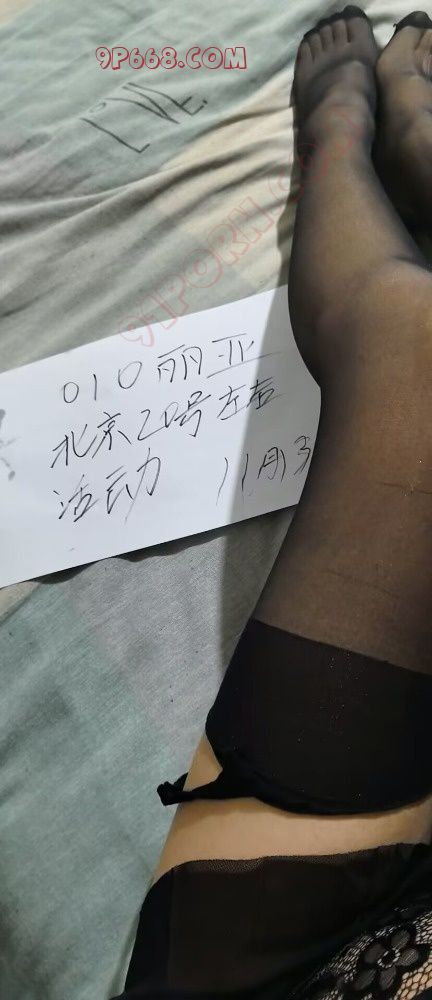 9P668.COM
LVL
91PORN.COM
010丽亚
北京20号左右
活动 11月3